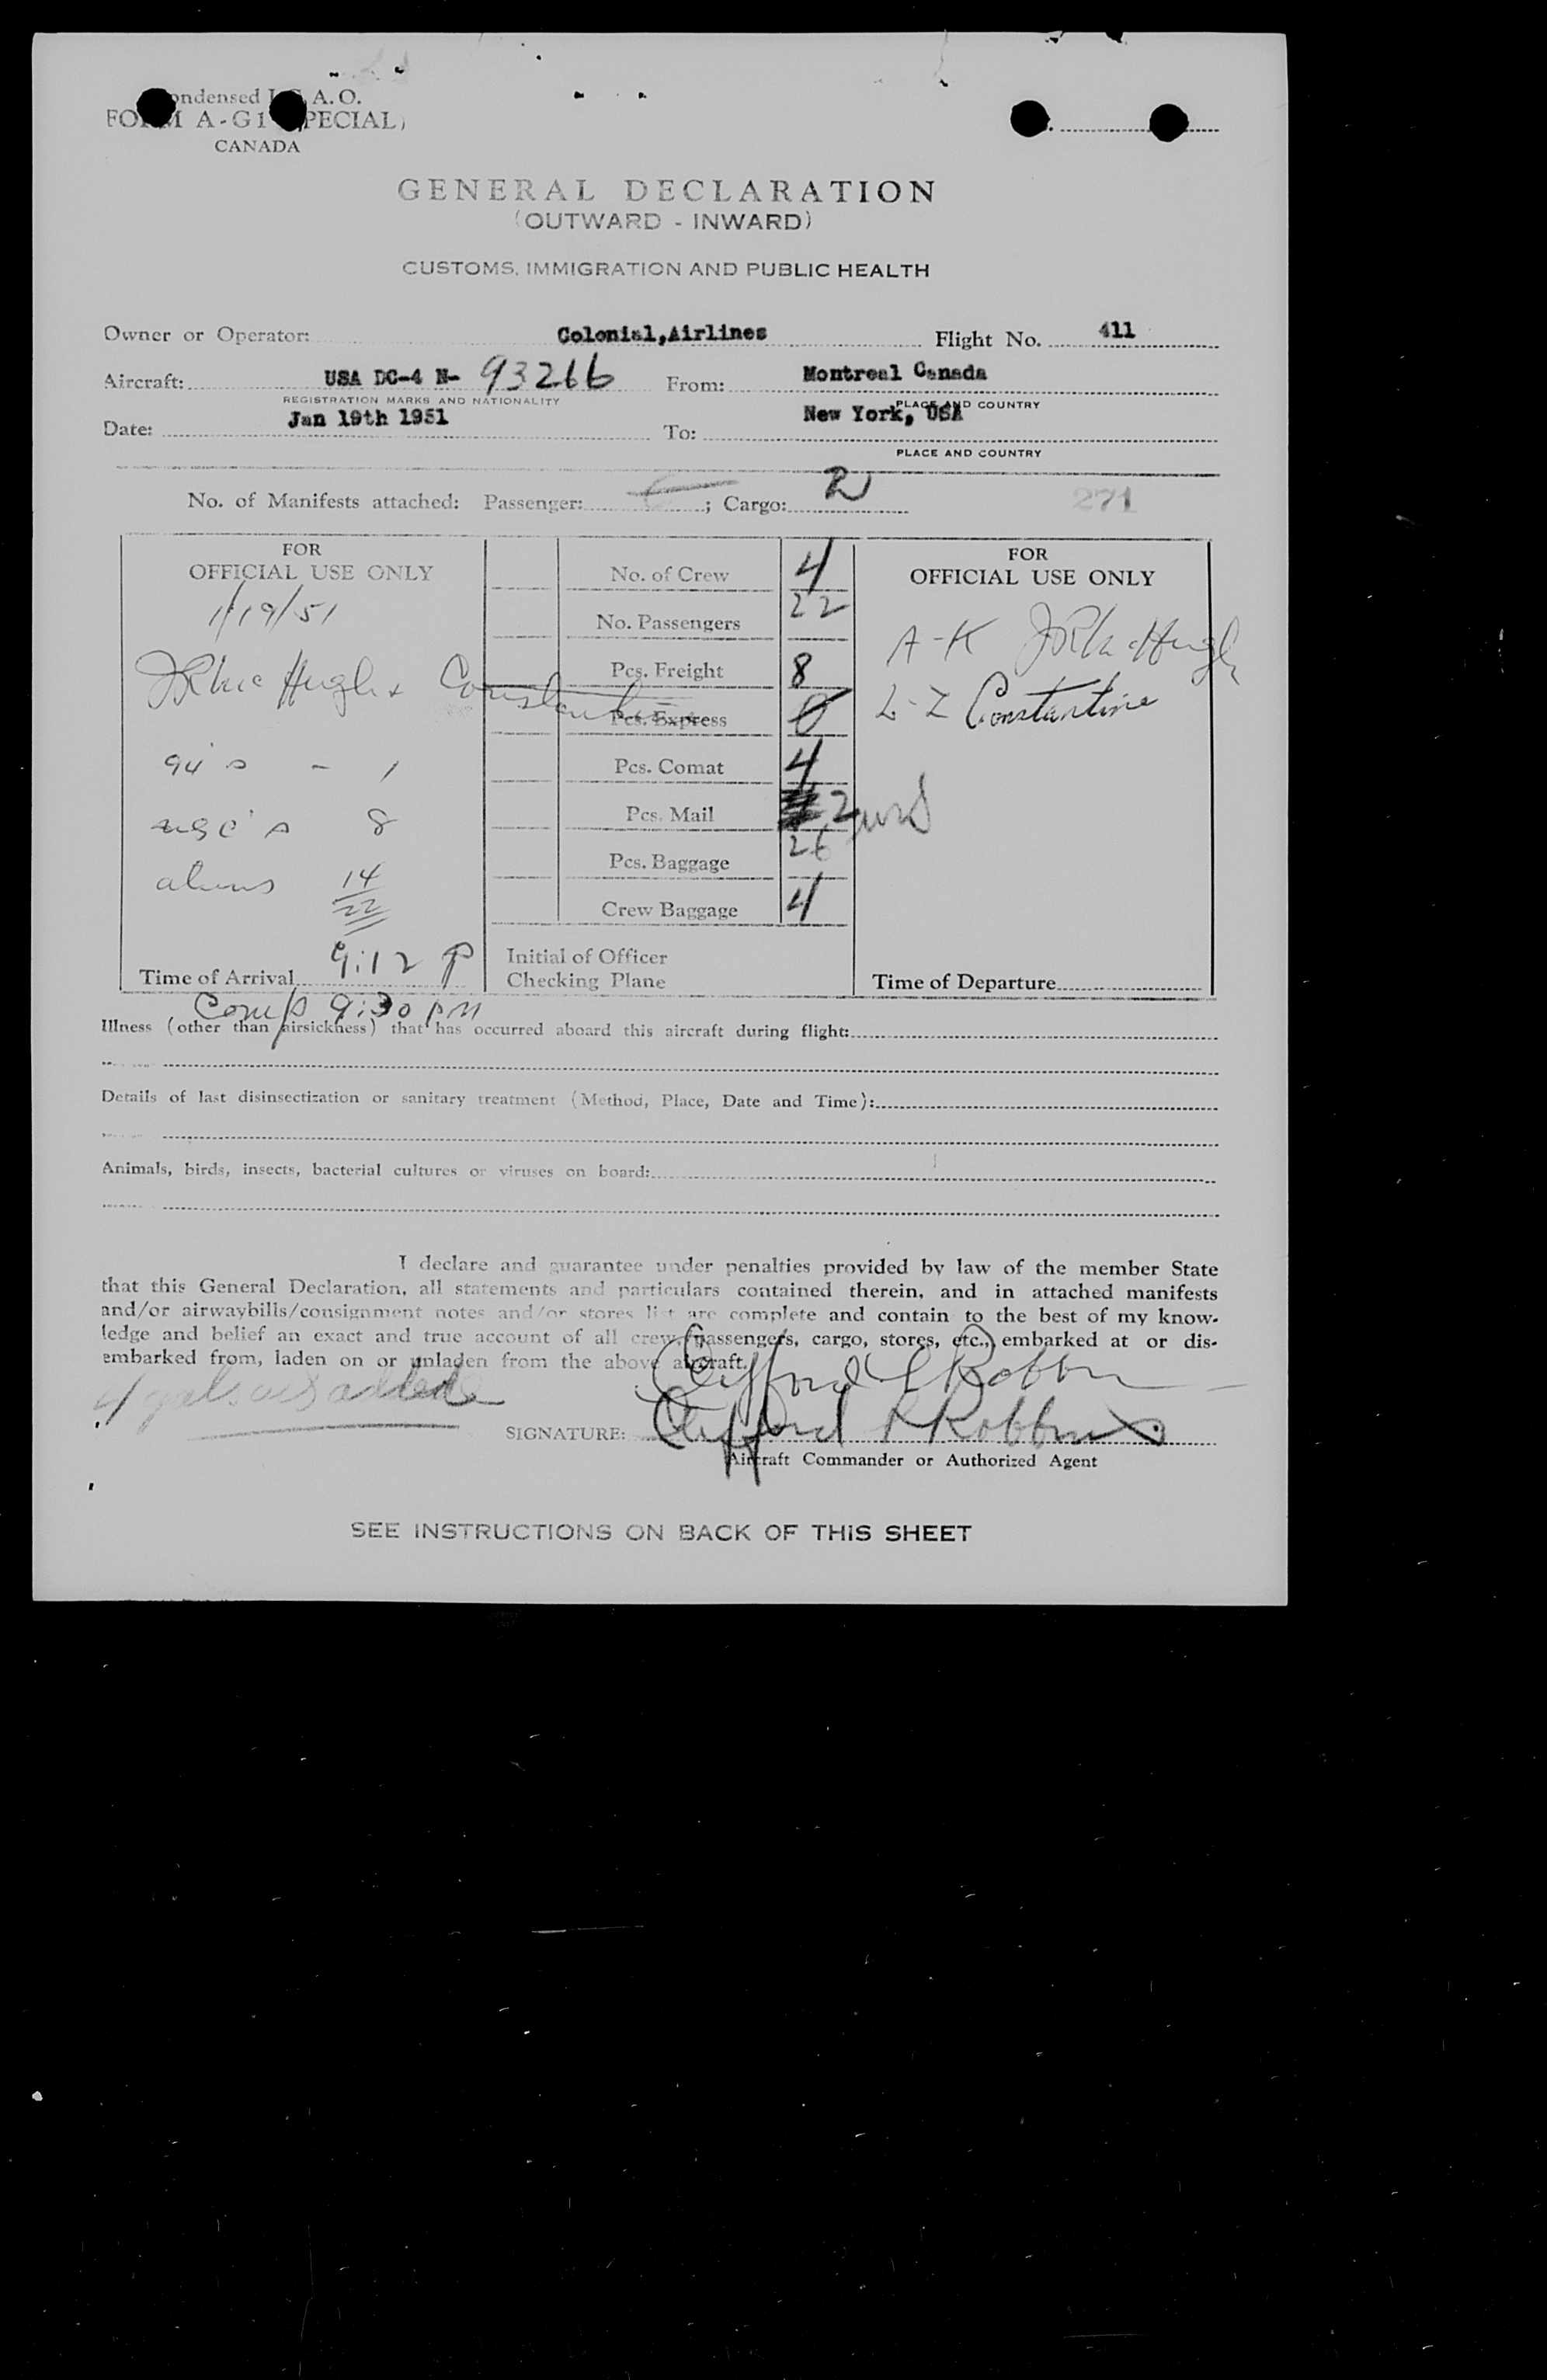 ondensed I A. O.
FO M A-G1 PECIAL)
CANADA
GENERAL DECLARATION
(OUTWARD - INWARD)
CUSTOMS, IMMIGRATION AND PUBLIC HEALTH
Owner or Operator: Colonial,Airlines Flight No. 411
Aircraft: USA DC-4 N- 93266 From: Montreal Canada
REGISTRATION MARKS AND NATIONALITY PLACE AND COUNTRY
Date: Jan 19th 1951 To: New York, USA
PLACE AND COUNTRY
No. of Manifests attached: Passenger: ; Cargo: 2 271
FOR
OFFICIAL USE ONLY
1/19/51
Hughes Constantine
94's - 1
usc's 8
aliens 14
22
Time of Arrival 9:12 P
Comp 9:30 PM
No. of Crew 4
No. Passengers 22
Pcs. Freight 8
Pcs. Express 0
Pcs. Comat 4
Pcs. Mail 2
Pcs. Baggage 26
Crew Baggage 4
Initial of Officer
Checking Plane
FOR
OFFICIAL USE ONLY
A-K
L-Z Constantine
Time of Departure
Illness (other than airsickness) that has occurred aboard this aircraft during flight:
Details of last disinsectization or sanitary treatment (Method, Place, Date and Time):
Animals, birds, insects, bacterial cultures or viruses on board:
I declare and guarantee under penalties provided by law of the member State
that this General Declaration, all statements and particulars contained therein, and in attached manifests
and/or airwaybills/consignment notes and/or stores list are complete and contain to the best of my know-
ledge and belief an exact and true account of all crew, passengers, cargo, stores, etc., embarked at or dis-
embarked from, laden on or unladen from the above aircraft.
Clifford L Robbins
4 gals added
SIGNATURE: Clifford L Robbins
Aircraft Commander or Authorized Agent
SEE INSTRUCTIONS ON BACK OF THIS SHEET